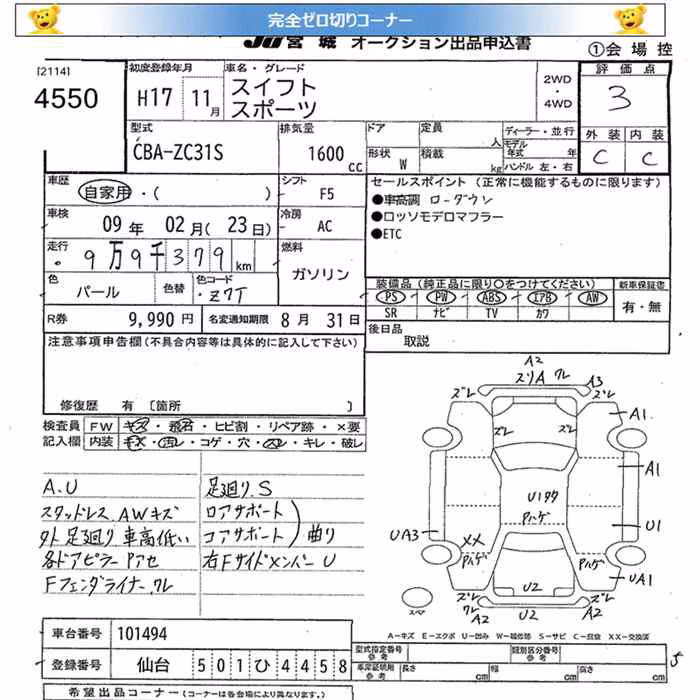 完全ゼロ切りコーナー
JU宮城 オークション出品申込書
①会場控
[2114]
4550
初度登録年月
H17 11月
車名・グレード
スイフト
スポーツ
2WD
・
4WD
評価点
3
外装 内装
C C
型式
CBA-ZC31S
排気量
1600cc
ドア
形状 W
定員 人
積載 kg
ディーラー・並行
モデル年式 年
ハンドル 左・右
車歴
自家用・( )
シフト
F5
車検
09年 02月( 23日)
冷房
AC
走行
9万9千379km
燃料
ガソリン
色
パール
色替
色コード
Z7T
R券 9,990円
名変通知期限 8月 31日
セールスポイント (正常に機能するものに限ります)
●車高調 ローダウン
●ロッソモデロマフラー
●ETC
装備品(純正品に限り○をつけてください)
PS PW ABS エアB AW
SR ナビ TV カワ
新車保証書
有・無
後日品
取説
注意事項申告欄(不具合内容等は具体的に記入して下さい)
修復歴 有 〔箇所 〕
検査員 FW キズ・飛石・ヒビ割・リペア跡・×要
記入欄 内装 キズ・汚レ・コゲ・穴・スレ・キレ・破レ
A.U
スタッドレス.AWキズ
外 足廻り 車高低い
各ドアピラー Pアセ
Fフェンダライナー.ワレ
足廻り.S
ロアサポート
コアサポート
曲り
右Fサイドメンバー U
A2
スリA ワレ
A3
ズレ
ズレ
A1
ズレ
ズレ
A1
U1タタ
Pハゲ
U1
UA3
XX
Pハゲ
Pハゲ
UA1
U2
スペア
ズレ
ワレ
A2
U2
ズレ
A2
A−キズ E−エクボ U−凹み W−補修跡 S−サビ C−腐食 XX−交換済
車台番号 101494
登録番号 仙台 501ひ4458
型式指定番号
参考
類別区分番号
参考
車庫証明用
参考
長さ cm
幅 cm
高さ cm
5
希望出品コーナー(コーナーは各会場により異なります。)